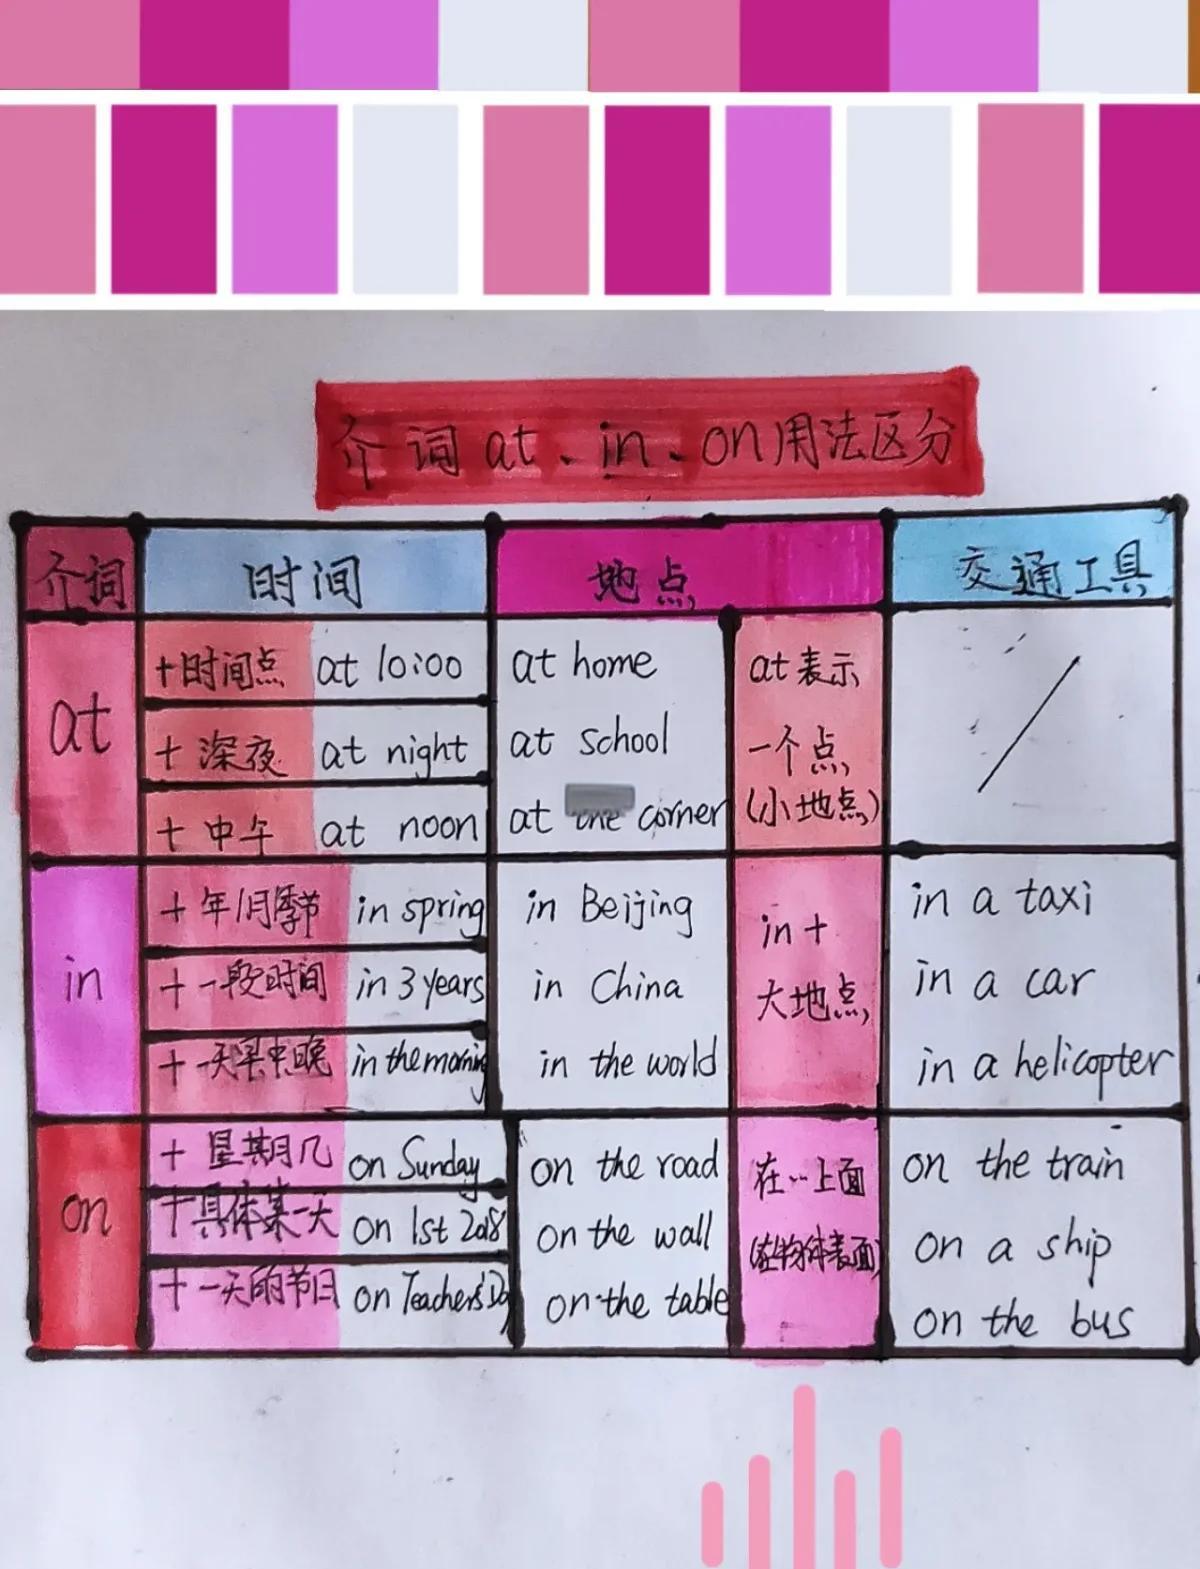 介词at、in、on用法区分
介词 时间 地点 交通工具
at
+时间点 at 10:00
+深夜 at night
+中午 at noon
at home
at school
at the corner
at表示
一个点
(小地点)
in
+年/月季节 in spring
+一段时间 in 3 years
+一天早中晚 in the morning
in Beijing
in China
in the world
in+
大地点
in a taxi
in a car
in a helicopter
on
+星期几 on Sunday
+具体某一天 on 1st 2018
+一天的节日 on Teachers'Day
on the road
on the wall
on the table
在…上面
(在物体表面)
on the train
on a ship
on the bus